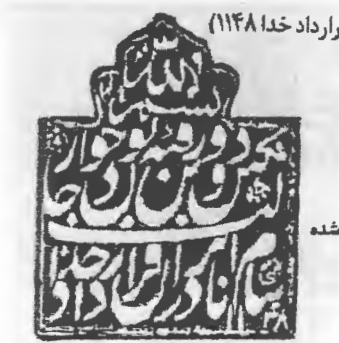 رارداد خدا ۱۱۴۸)
بسم الله
نگین دولت و دین رفته بود چون از جا
شده
بنام نادر ایران قرار داد خدا